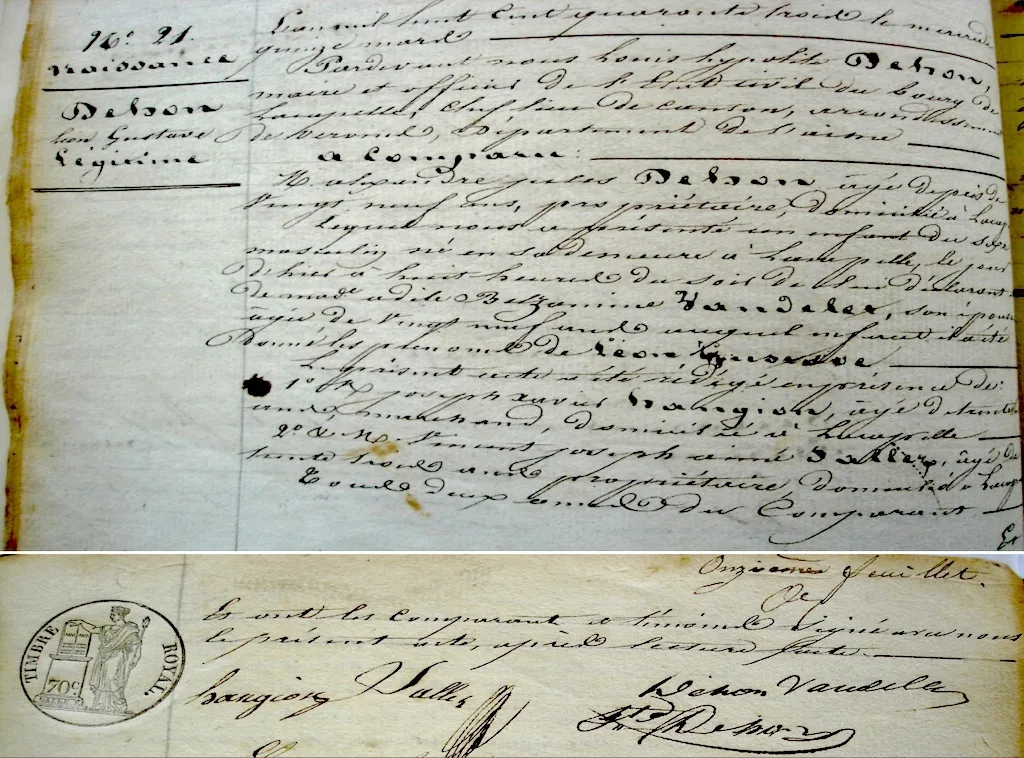 N.º 21
Naissance
Dehon
Léon Gustave
Légitime
L'an mil huit cent quarante trois le mercredi
quinze mars
Pardevant nous Louis hypolite Dehon,
maire et officier de l'Etat civil du bourg de
Lacapelle, chef lieu de canton, arrondissement
de Vervins, Département de l'aisne
a comparu :
M. alexandre jules Dehon, âgé depuis de
vingt neuf ans, propriétaire, domicilié à Lacap
Lequel nous a présenté un enfant du sexe
masculin né en sa demeure à Lacapelle, le jour
d'hier à huit heures du soir de lui déclarant
de mad.e adile Belzamine Vandelet, son épouse
agée de vingt neuf ans auquel enfant il a été
Donné les prénoms de Léon Gustave
Le présent acte a été rédigé en présence de:
1.º M. joseph xavier hangion, âgé de trente
ans, marchand, domicilié à Lacapelle
2.º & M. Vincent joseph aimé Sallez, âgé de
trente trois ans propriétaire, domicilié à Lacap
Tous deux amis du Comparant
Et
Onzième feuillet.
Et ont les comparant et témoins signé avec nous
le présent acte, après lecture faite.
TIMBRE ROYAL
70c
hangion Sallez Dehon Vandelet
Dehon